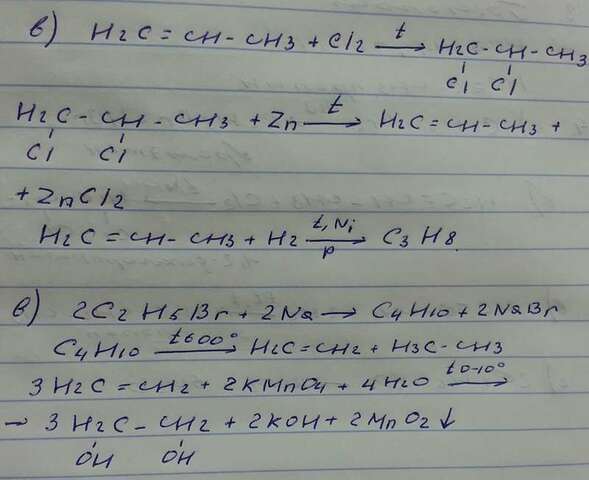 в) H2C=CH-CH3 + Cl2 t→ H2C-CH-CH3
Cl Cl
H2C-CH-CH3 + Zn t→ H2C=CH-CH3 +
Cl Cl
+ZnCl2
H2C=CH-CH3 + H2 t, Ni→ p C3H8.
в) 2C2H5Br + 2Na → C4H10 + 2NaBr
C4H10 t600°→ H2C=CH2 + H3C-CH3
3H2C=CH2 + 2KMnO4 + 4H2O t0-10°→
→ 3H2C-CH2 + 2KOH + 2MnO2↓
OH OH